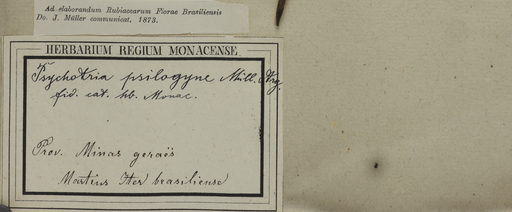 Ad elaborandum Rubiacearum Florae Brasiliensis
Do. J. Müller communicat, 1873.
HERBARIUM REGIUM MONACENSE.
Psychotria psilogyne Müll. Arg.
fid. cat. hb. Monac.
Prov. Minas geraës
Martius Iter brasiliense